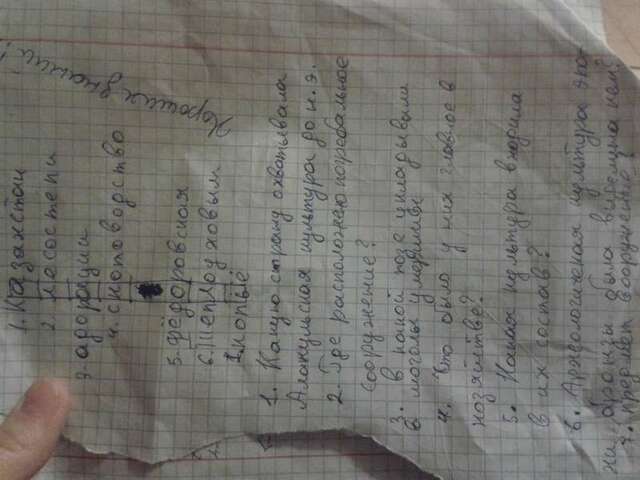 Хорошие знания!
1. Казахстан
2. лесостепи
3. аборации
4. скотоводство
5. федоровская
6. Теплоуховым
7. копьё
1. Какую страну охватывала
Алакульская культура до н.э.
2. Где расположено погребальное
сооружение?
3. в какой позе укладывали
в моголы умершие
4. Что было у них главное в
хозяйстве?
5. Какая культура входила
в их состав?
6. Археологическая культура эпо-
хи бронзы была выделена кем?
7. предмет вооружение?